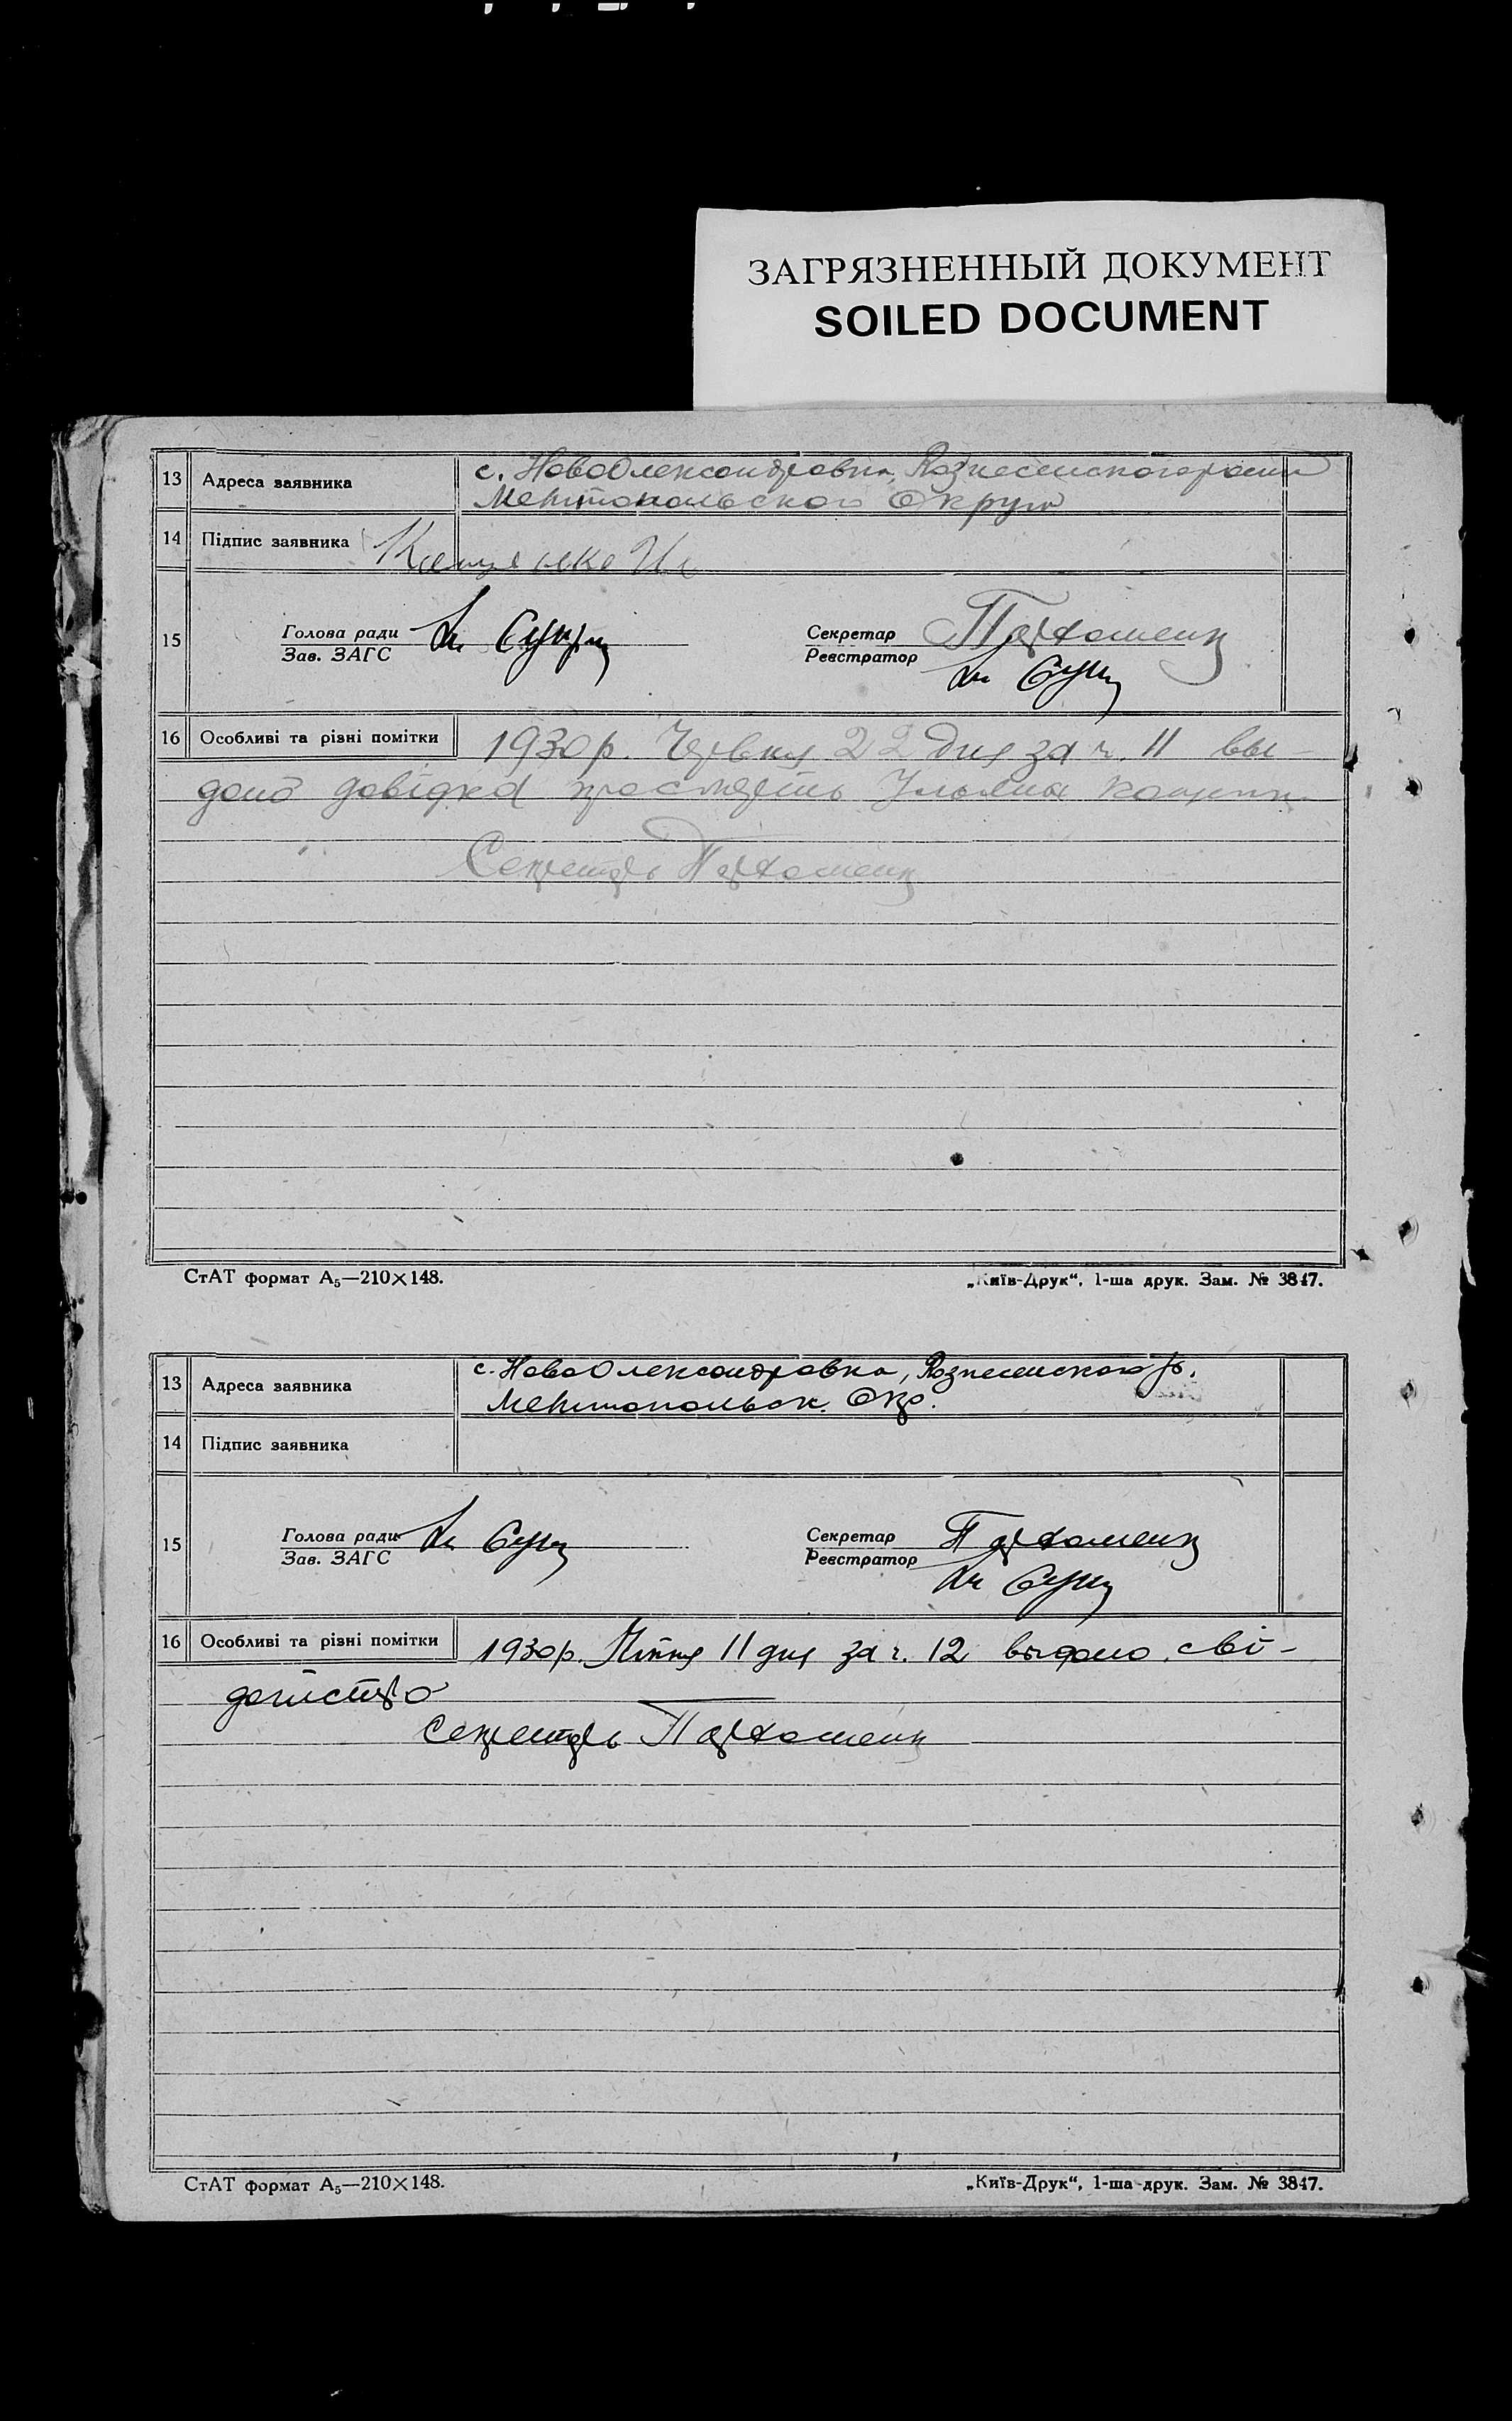 ЗАГРЯЗНЕННЫЙ ДОКУМЕНТ
SOILED DOCUMENT
13 Адреса заявника с. НовоОлександровка, Вознесенского району
Мелитопольского Округу
14 Підпис заявника
15 Голова ради
Зав. ЗАГС
Секретар Пархоменк
Реєстратор
16 Особливі та різні помітки 1930 р. Червня 22 дня за ч. 11 вы-
дано довідка Ульяна
Секретарь Пархоменк
СтАТ формат А₅—210×148. „Київ-Друк“, 1-ша друк. Зам. № 3847.
13 Адреса заявника с. НовоОлександровка, Вознесенского р.
Мелитопольск. Окр.
14 Підпис заявника
15 Голова ради
Зав. ЗАГС
Секретар Пархоменк
Реєстратор
16 Особливі та різні помітки 1930 р. Липня 11 дня за ч. 12 выдано сві-
доцтво
Секретарь Пархоменк
СтАТ формат А₅—210×148. „Київ-Друк“, 1-ша друк. Зам. № 3847.